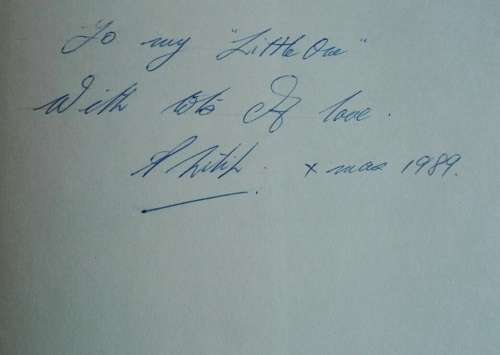 To my "Little One"
With lots of love.
Philip. Xmas 1989.